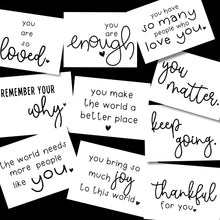 you
are
so
loved.
you
are
enough.
you have
so many
people who
love you.
REMEMBER YOUR
why.
you make
the world a
better place
you
matter.
keep
going.
the world needs
more people
like you.
you bring so
much joy
to this world
thankful
for you.